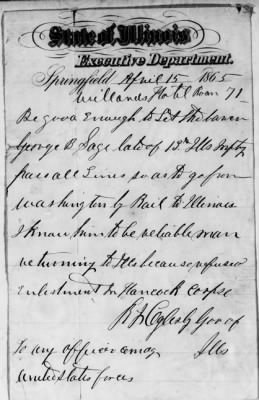 State of Illinois
Executive Department.
Springfield April 15 1865
Willards Hotel Room 71
Be good Enough to Let the bearer
George B Sage late of 12th Ills Infty
pass all Lines so as to go from
Washington by Rail to Illinois
I know him to be reliable man
returning to Ills because refused
Enlistment in Hancock Corpse
R J Oglesby Gov of
Ills
To any officer comdg
United States forces